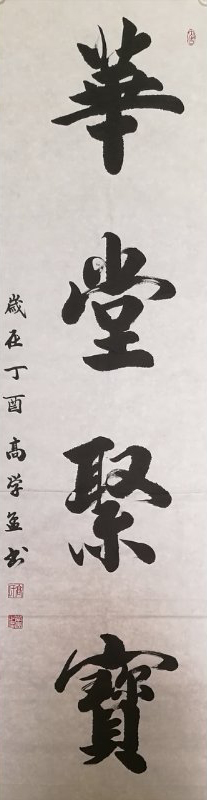 華堂聚寶
歲在丁酉高学孟书